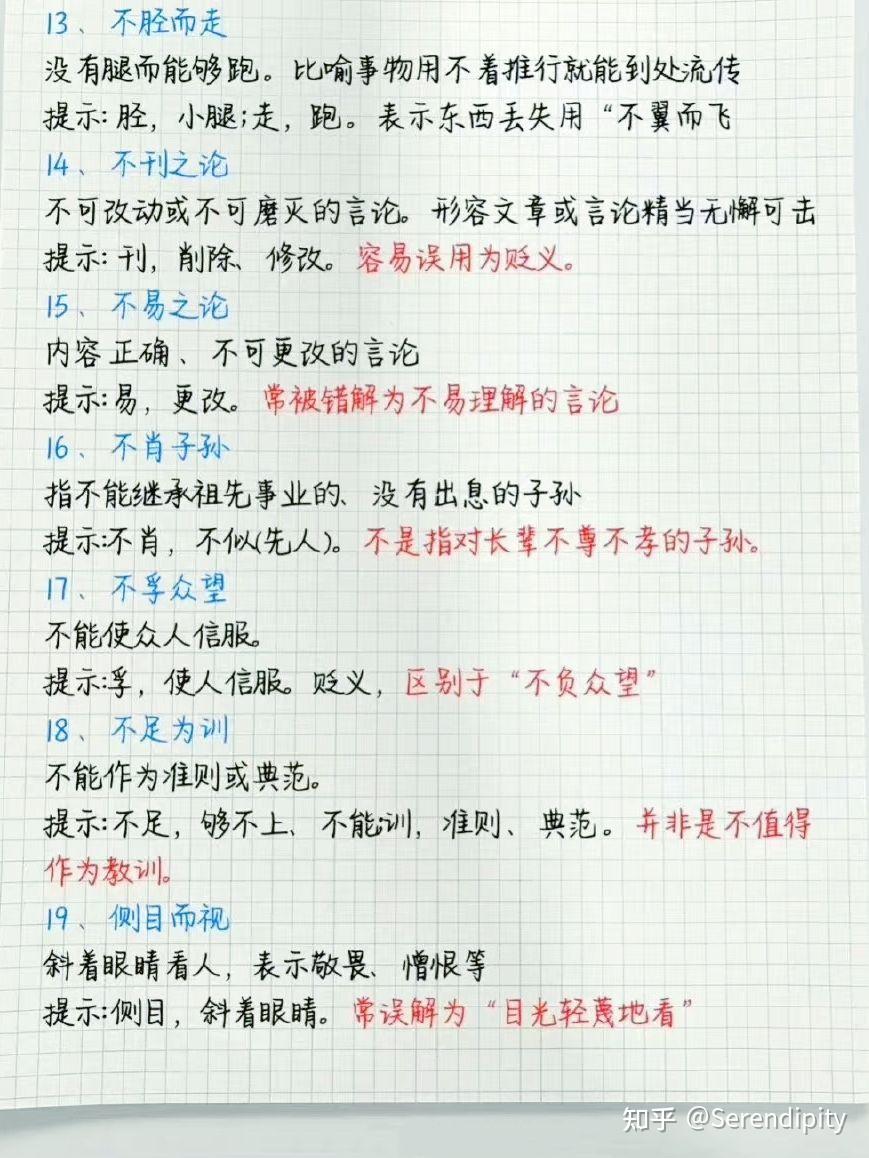 13、不胫而走
没有腿而能够跑。比喻事物用不着推行就能到处流传
提示:胫，小腿;走，跑。表示东西丢失用“不翼而飞
14、不刊之论
不可改动或不可磨灭的言论。形容文章或言论精当无懈可击
提示:刊，削除、修改。容易误用为贬义。
15、不易之论
内容正确、不可更改的言论
提示:易，更改。常被错解为不易理解的言论
16、不肖子孙
指不能继承祖先事业的、没有出息的子孙
提示:不肖，不似(先人)。不是指对长辈不尊不孝的子孙。
17、不孚众望
不能使众人信服。
提示:孚，使人信服。贬义，区别于“不负众望”
18、不足为训
不能作为准则或典范。
提示:不足，够不上、不能;训，准则、典范。并非是不值得
作为教训。
19、侧目而视
斜着眼睛看人，表示敬畏、憎恨等
提示:侧目，斜着眼睛。常误解为“目光轻蔑地看”
知乎 @Serendipity